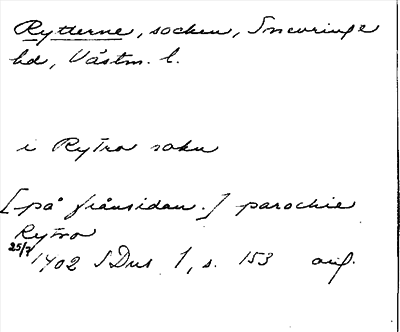 Rytterne, socken, Snevringe
hd, Västm. l.
i Rytra sokn
[på frånsidan.] parochie
Rytro
25/7 1402 SDns 1, s. 153 orig.